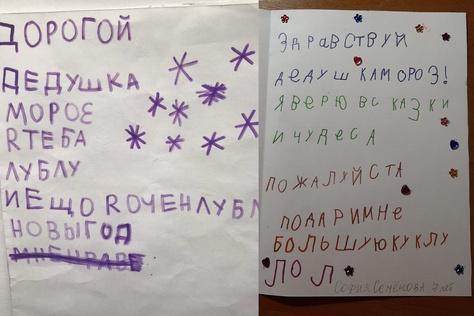 ДОРОГОЙ
ДЕДУШКА
МОРОЕ
RТЕБА
ЛУБЛУ
ИЕЩО RОЧЕНЛУБЛ
НОВЫГОД
ЗДРАВСТВУЙ
ДЕДУШКАМОРОЗ!
ЯВЕРЮ ВСКАЗКИ
И ЧУДЕСА
ПОЖАЛУЙСТА
ПОДАРИМНЕ
БОЛЬШУЮКУКЛУ
ЛОЛ
СОФИЯ СЕМЕНОВА 7 лет